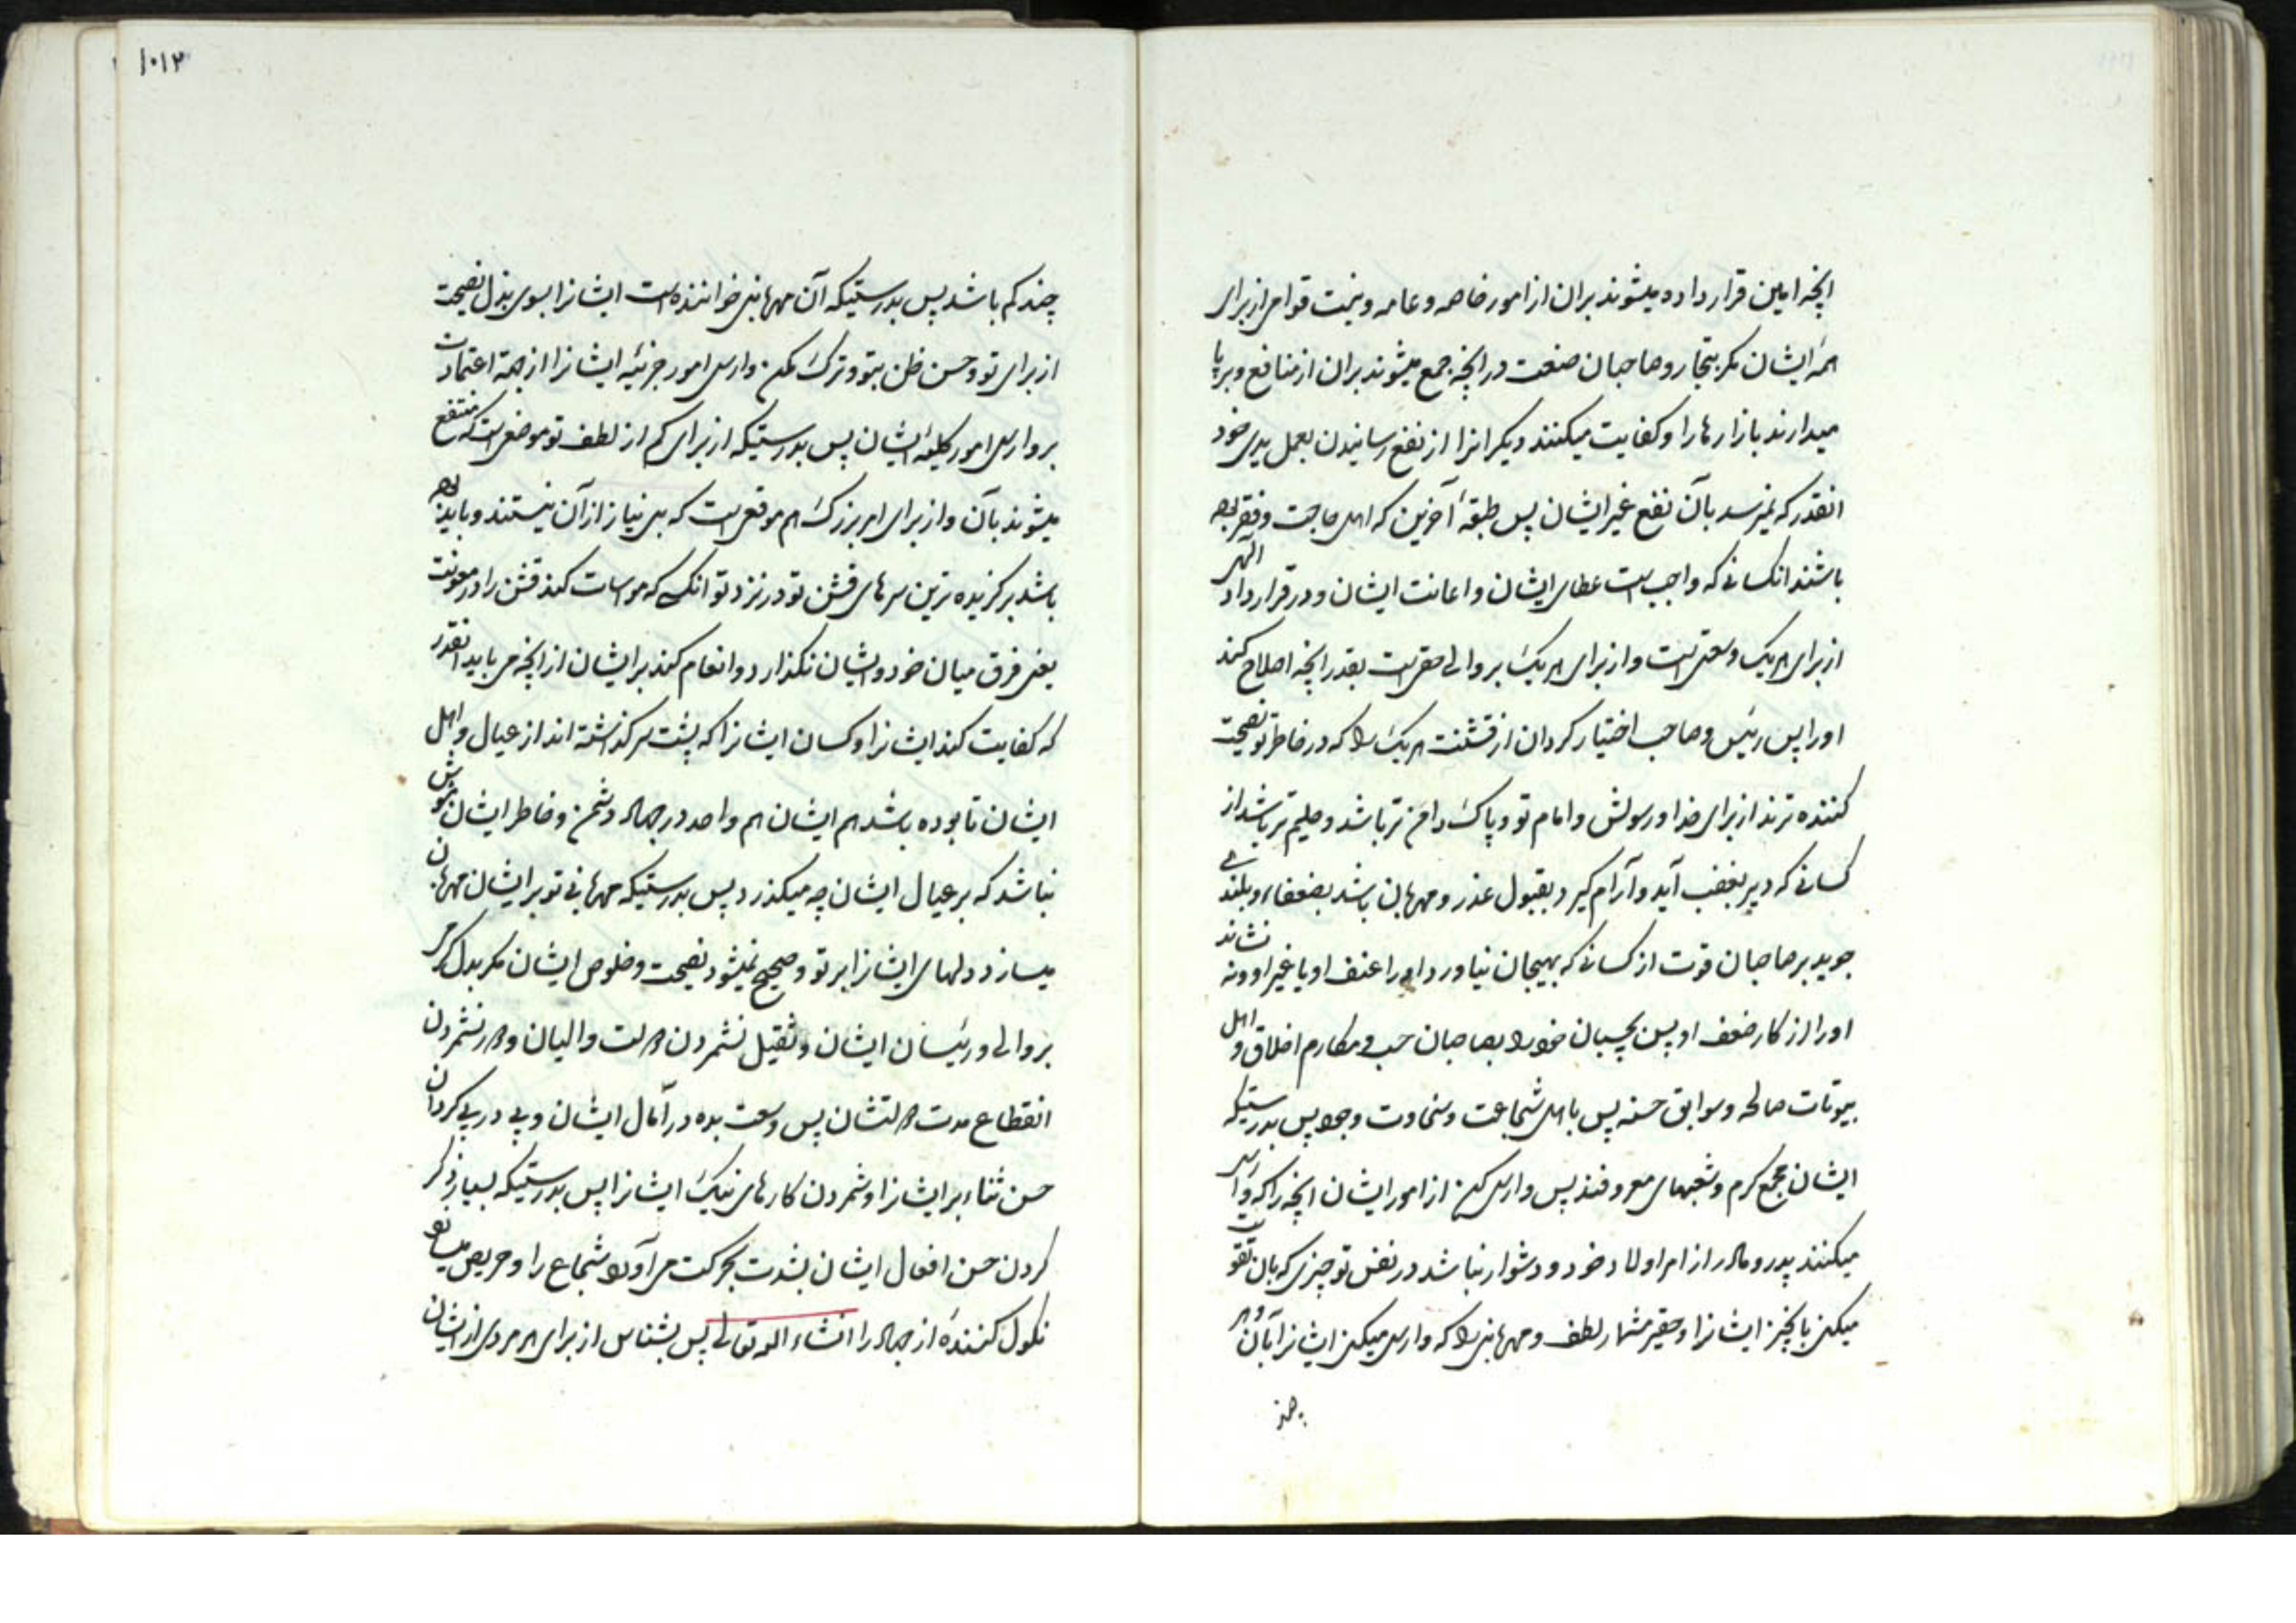 انچه امین قرار داده میشوند بران از امور خاصه و عامه و نیست قوامی از برای
همهٔ ایشان مکر بتجار و صاحبان صنعت در انچه جمع میشوند بران از منافع و برپا
میدارند بازارها را و کفایت میکنند دیکرانرا از نفع رسانیدن بعمل یدی خود
انقدر که نمیرسد بآن نفع غیر ایشان پس طبقهٔ آخرین که اهل حاجت و فقر بوده
باشند انکسانی که واجب است عطای ایشان و اعانت ایشان و در قرارداد الهی
از برای هریک وسعتی است و از برای هریک بر والی حقی است بقدر انچه اصلاح کند
اورا پس رئیس و صاحب اختیار کردان از قشنت هریک را که در خاطر تو نصیحت
کننده ترند از برای خدا و رسولش و امام تو و پاک دامن تر باشد و حلیم تر باشد از
کسانی که دیر بغضب آید و آرام کیرد بقبول عذر و مهربان باشد بضعفاء و بلندی
جوید بر صاحبان قوت از کسانی که بهیجان نیاورد اورا عنف او یا غیر او و ننشاند
اورا از کار ضعف او پس بچسبان خود را بصاحبان حسب و مکارم اخلاق و اهل
بیوتات صالحه و سوابق حسنه پس باهل شجاعت و سخاوت وجود پس بدرستیکه
ایشان مجمع کرم و شعبهای معروفند پس وارسی کن از امور ایشان انچه را که وارسی
میکنند پدر و مادر از امر اولاد خود و دشوار نباشد در نفس تو چیزی که بان تقویت
میکنی بانچیز ایشانرا و حقیر مشمار لطف و مهربانی را که وارسی میکنی ایشانرا بآن و هر
چند
۱۰۱۲
چند کم باشد پس بدرستیکه آن مهربانی خواننده است ایشانرا بسوی بذل نصیحت
از برای تو و حسن ظن بتو و ترک مکن وارسی امور جزئیه ایشانرا از جهة اعتمادت
بر وارسی امور کلیهٔ ایشان پس بدرستیکه از برای کم از لطف تو موضعی است که منتفع
میشوند بآن و از برای امر بزرک هم موقعی است که بی نیاز از آن نیستند و باید بوده
باشد برکزیده ترین سرهای قشن تو در نزد تو انکسی که مواسات کند قشن را در معونت
یعنی فرق میان خود و ایشان نکذارد و انعام کند بر ایشان از انچه می باید انقدر
که کفایت کند ایشانرا و کسان ایشانرا که پشت سر کذاشته اند از عیال و اهل
ایشان تا بوده باشد هم ایشان هم واحد در جهاد دشمن و خاطر ایشان مشوش
نباشد که بر عیال ایشان چه میکذرد پس بدرستیکه مهربانی تو بر ایشان مهربان
میسازد دلهای ایشانرا بر تو و صحیح نمیشود نصیحت و خلوص ایشان مکر
بر والی و رئیسان ایشان و ثقیل نشمردن دولت والیان و دیر نشمردن
انقطاع مدت دولتشان پس وسعت بده در آمال ایشان و پی در پی کردان
حسن ثناء بر ایشانرا و شمردن کارهای نیک ایشانرا پس بدرستیکه بسیار ذکر
کردن حسن افعال ایشان بشدت بحرکت می آورد شجاع را و حریص میسازد
نکول کنندهٔ از جهاد را انشاء الله تعالی پس بشناس از برای هر مردی از ایشان